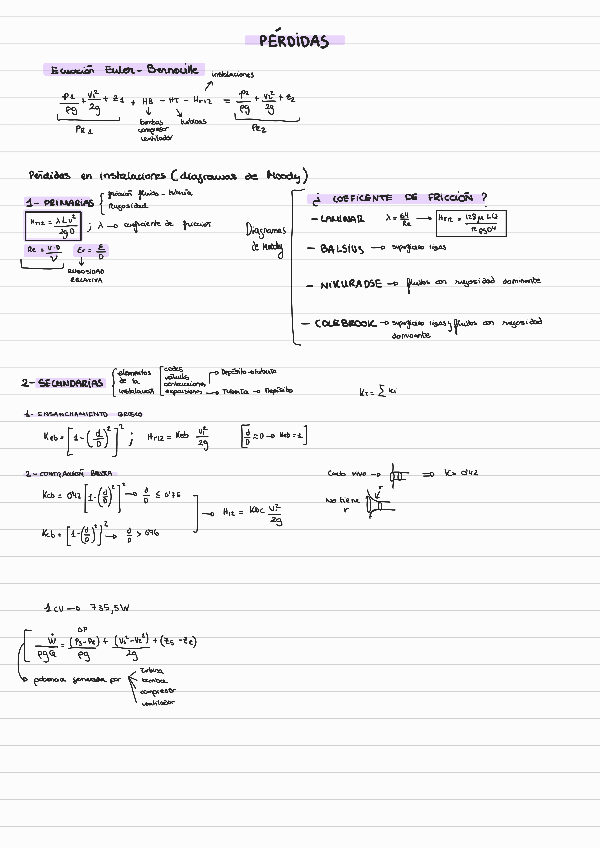 PÉRDIDAS
Ecuación Euler - Bernouille
instalaciones
P1/ρg + V1²/2g + Z1 + HB - HT - Hr12 = P2/ρg + V2²/2g + Z2
PE1
bombas
compresor
ventilador
turbinas
PE2
Pérdidas en instalaciones (diagramas de Moody)
1- PRIMARIAS
fricción fluido - tubería
Rugosidad
Hr12 = λLv²/2gD ; λ → coeficiente de fricción
Re = V·D/ν
Er = ε/D
RUGOSIDAD
RELATIVA
Diagramas
de Moody
¿ COEFICENTE DE FRICCIÓN ?
- LAMINAR λ = 64/Re → Hr12 = 128μLQ/πρgD⁴
- BALSIUS → superficies lisas
- NIKURADSE → fluidos con rugosidad dominante
- COLEBROOK → superficies lisas y fluidos con rugosidad
dominante
2- SECUNDARIAS
elementos
de la
instalación
codos
válvulas
contracciones → Depósito → tubería
expansiones → Tubería → Depósito
KT = Σ Ki
1- ENSANCHAMIENTO BRUSCO
Keb = [1-(d/D)²]² ; Hr12 = Keb V1²/2g [d/D ≈ 0 → Keb = 1]
2- CONTRACCIÓN BRUSCA
Kcb = 0'42 [1-(d/D)²]² → d/D ≤ 0'76
Kcb = [1-(d/D)²]² → d/D > 0'76
→ Hr12 = Kbc V2²/2g
Canto vivo → ⇒ K = 0'42
No tiene
r
r
1 CV → 735,5 W
ΔP
Ẇ/ρgQ = (Ps-Pe)/ρg + (Vs²-Ve²)/2g + (Zs-Ze)
potencia generada por
turbina
bomba
compresor
ventilador